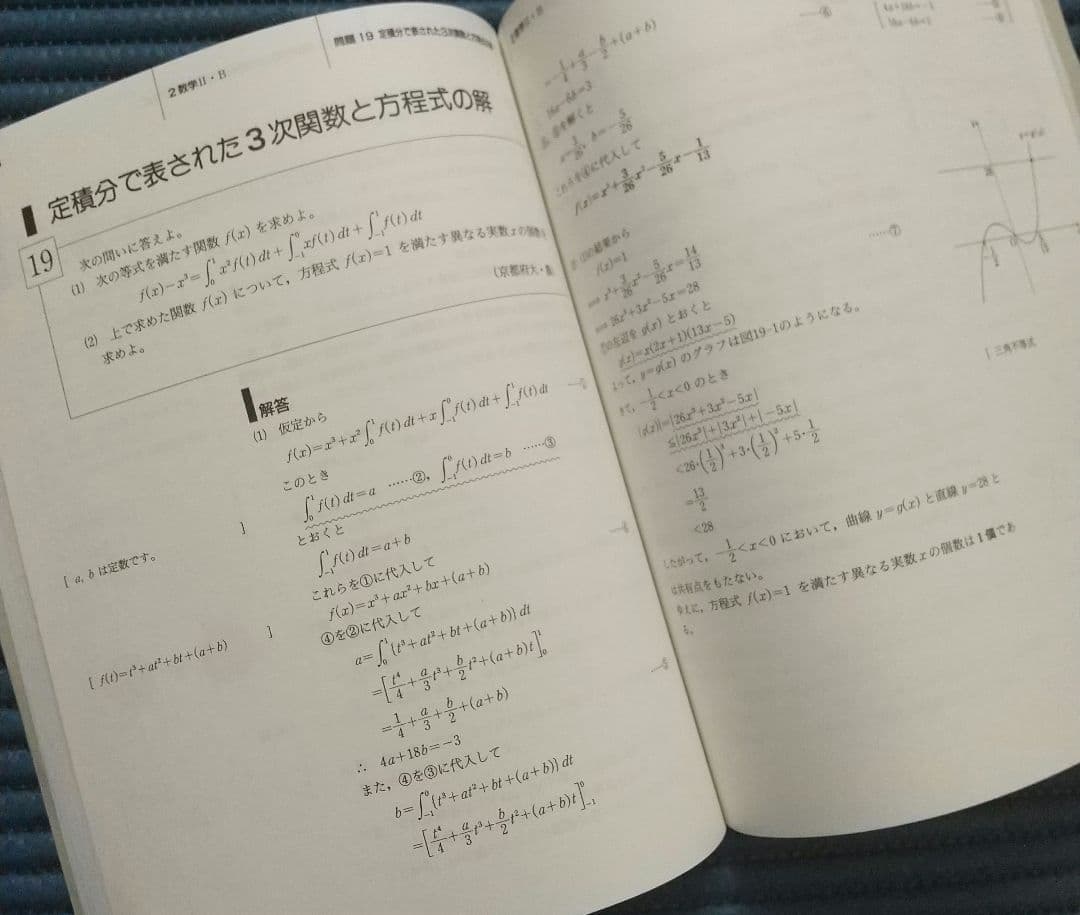 2 数学II・B
問題 19 定積分で表された3次関数と方程式の解
定積分で表された3次関数と方程式の解
19
次の問いに答えよ。
(1) 次の等式を満たす関数 f(x) を求めよ。
f(x)−x³=∫₀¹x²f(t)dt+∫₋₁⁰xf(t)dt+∫₋₁¹f(t)dt
(2) 上で求めた関数 f(x) について，方程式 f(x)=1 を満たす異なる実数 x の個数を
求めよ。
(京都府大・
解答
(1) 仮定から
f(x)=x³+x²∫₀¹f(t)dt+x∫₋₁⁰f(t)dt+∫₋₁¹f(t)dt
このとき
∫₀¹f(t)dt=a ……②, ∫₋₁⁰f(t)dt=b ……③
[ a, b は定数です。 ]
とおくと
∫₋₁¹f(t)dt=a+b
これらを①に代入して
f(x)=x³+ax²+bx+(a+b)
④を②に代入して
[ f(t)=t³+at²+bt+(a+b) ]
a=∫₀¹{t³+at²+bt+(a+b)}dt
=[t⁴/4+a/3t³+b/2t²+(a+b)t]₀¹
=1/4+a/3+b/2+(a+b)
∴ 4a+18b=−3
また，④を③に代入して
b=∫₋₁⁰{t³+at²+bt+(a+b)}dt
=[t⁴/4+a/3t³+b/2t²+(a+b)t]₋₁⁰
=−1/4+a/3−b/2+(a+b)
……⑥
を解くと
b=−5/26
に代入して
f(x)=x³+3/26x²−5/26x−1/13
の結果から
f(x)=1
⟺ x³+3/26x²−5/26x=14/13
⟺ 26x³+3x²−5x=28
……⑦
の左辺を g(x) とおくと
g(x)=x(2x+1)(13x−5)
よって，y=g(x) のグラフは図19-1のようになる。
さて，−1/2<x<0 のとき
|g(x)|=|26x³+3x²−5x|
≦|26x³|+|3x²|+|−5x|
[ 三角不等式
<26・(1/2)³+3・(1/2)²+5・1/2
=13/2
<28
したがって，−1/2<x<0 において，曲線 y=g(x) と直線 y=28 と
は共有点をもたない。
ゆえに，方程式 f(x)=1 を満たす異なる実数 x の個数は1個であ
る。